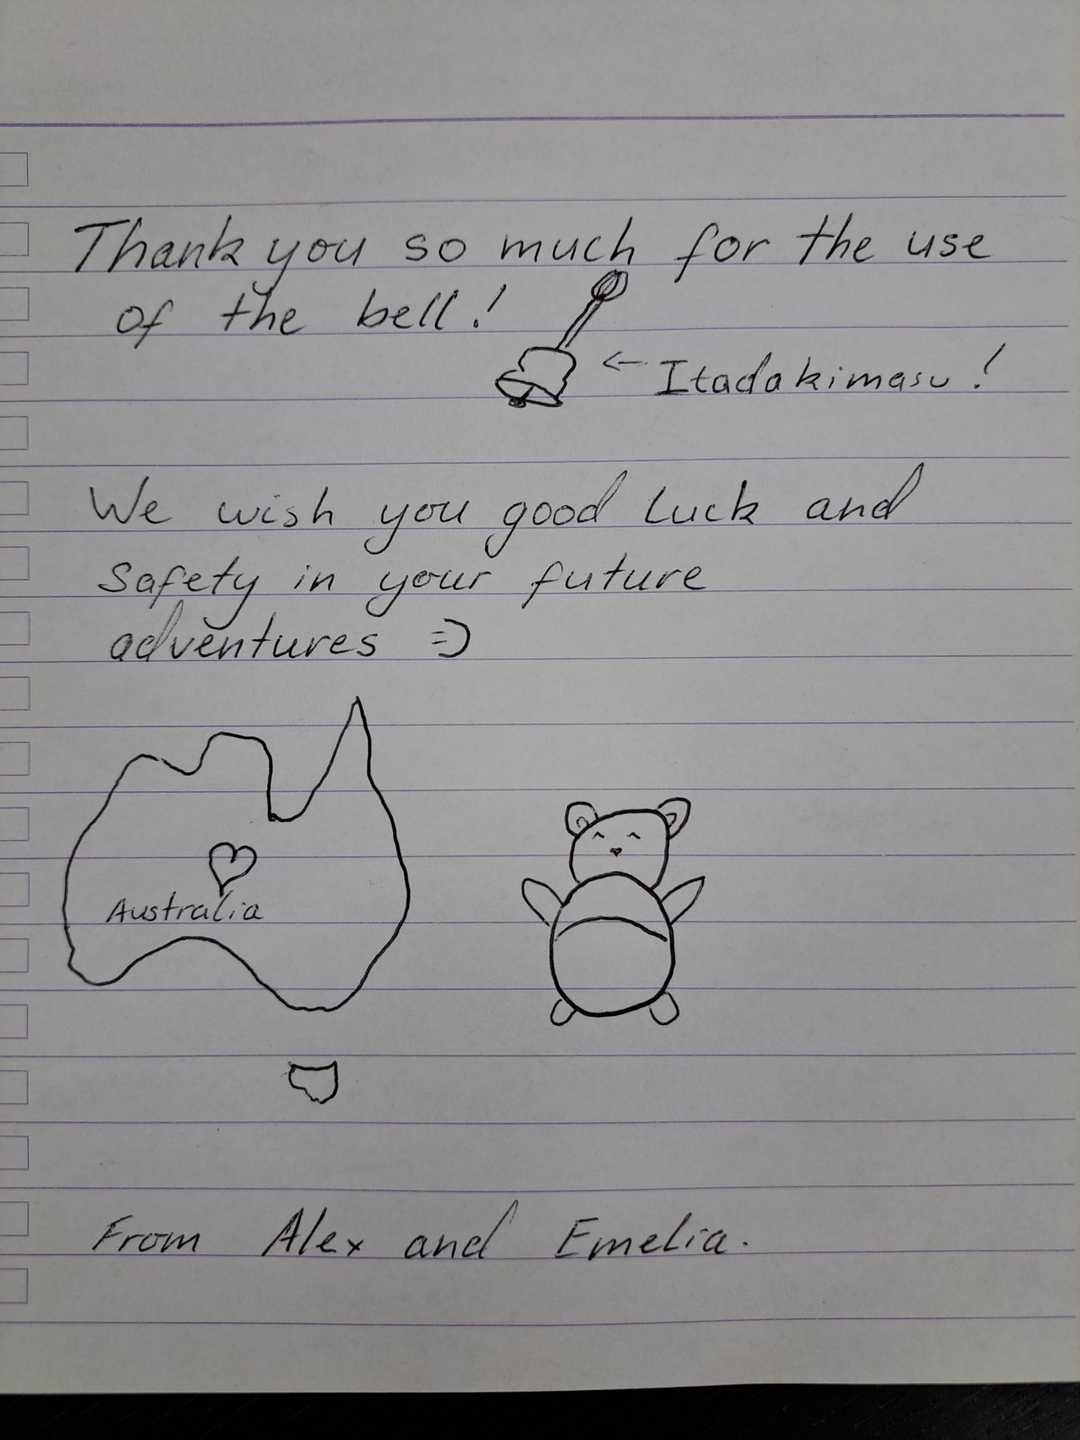 Thank you so much for the use
of the bell!
← Itadakimasu!
We wish you good luck and
safety in your future
adventures =)
Australia
From Alex and Emelia.